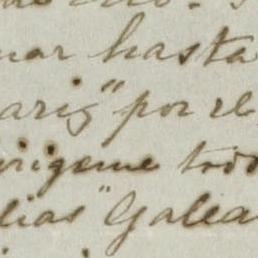 uar hasta
aris" por el
irigeme todo
lias" Galea